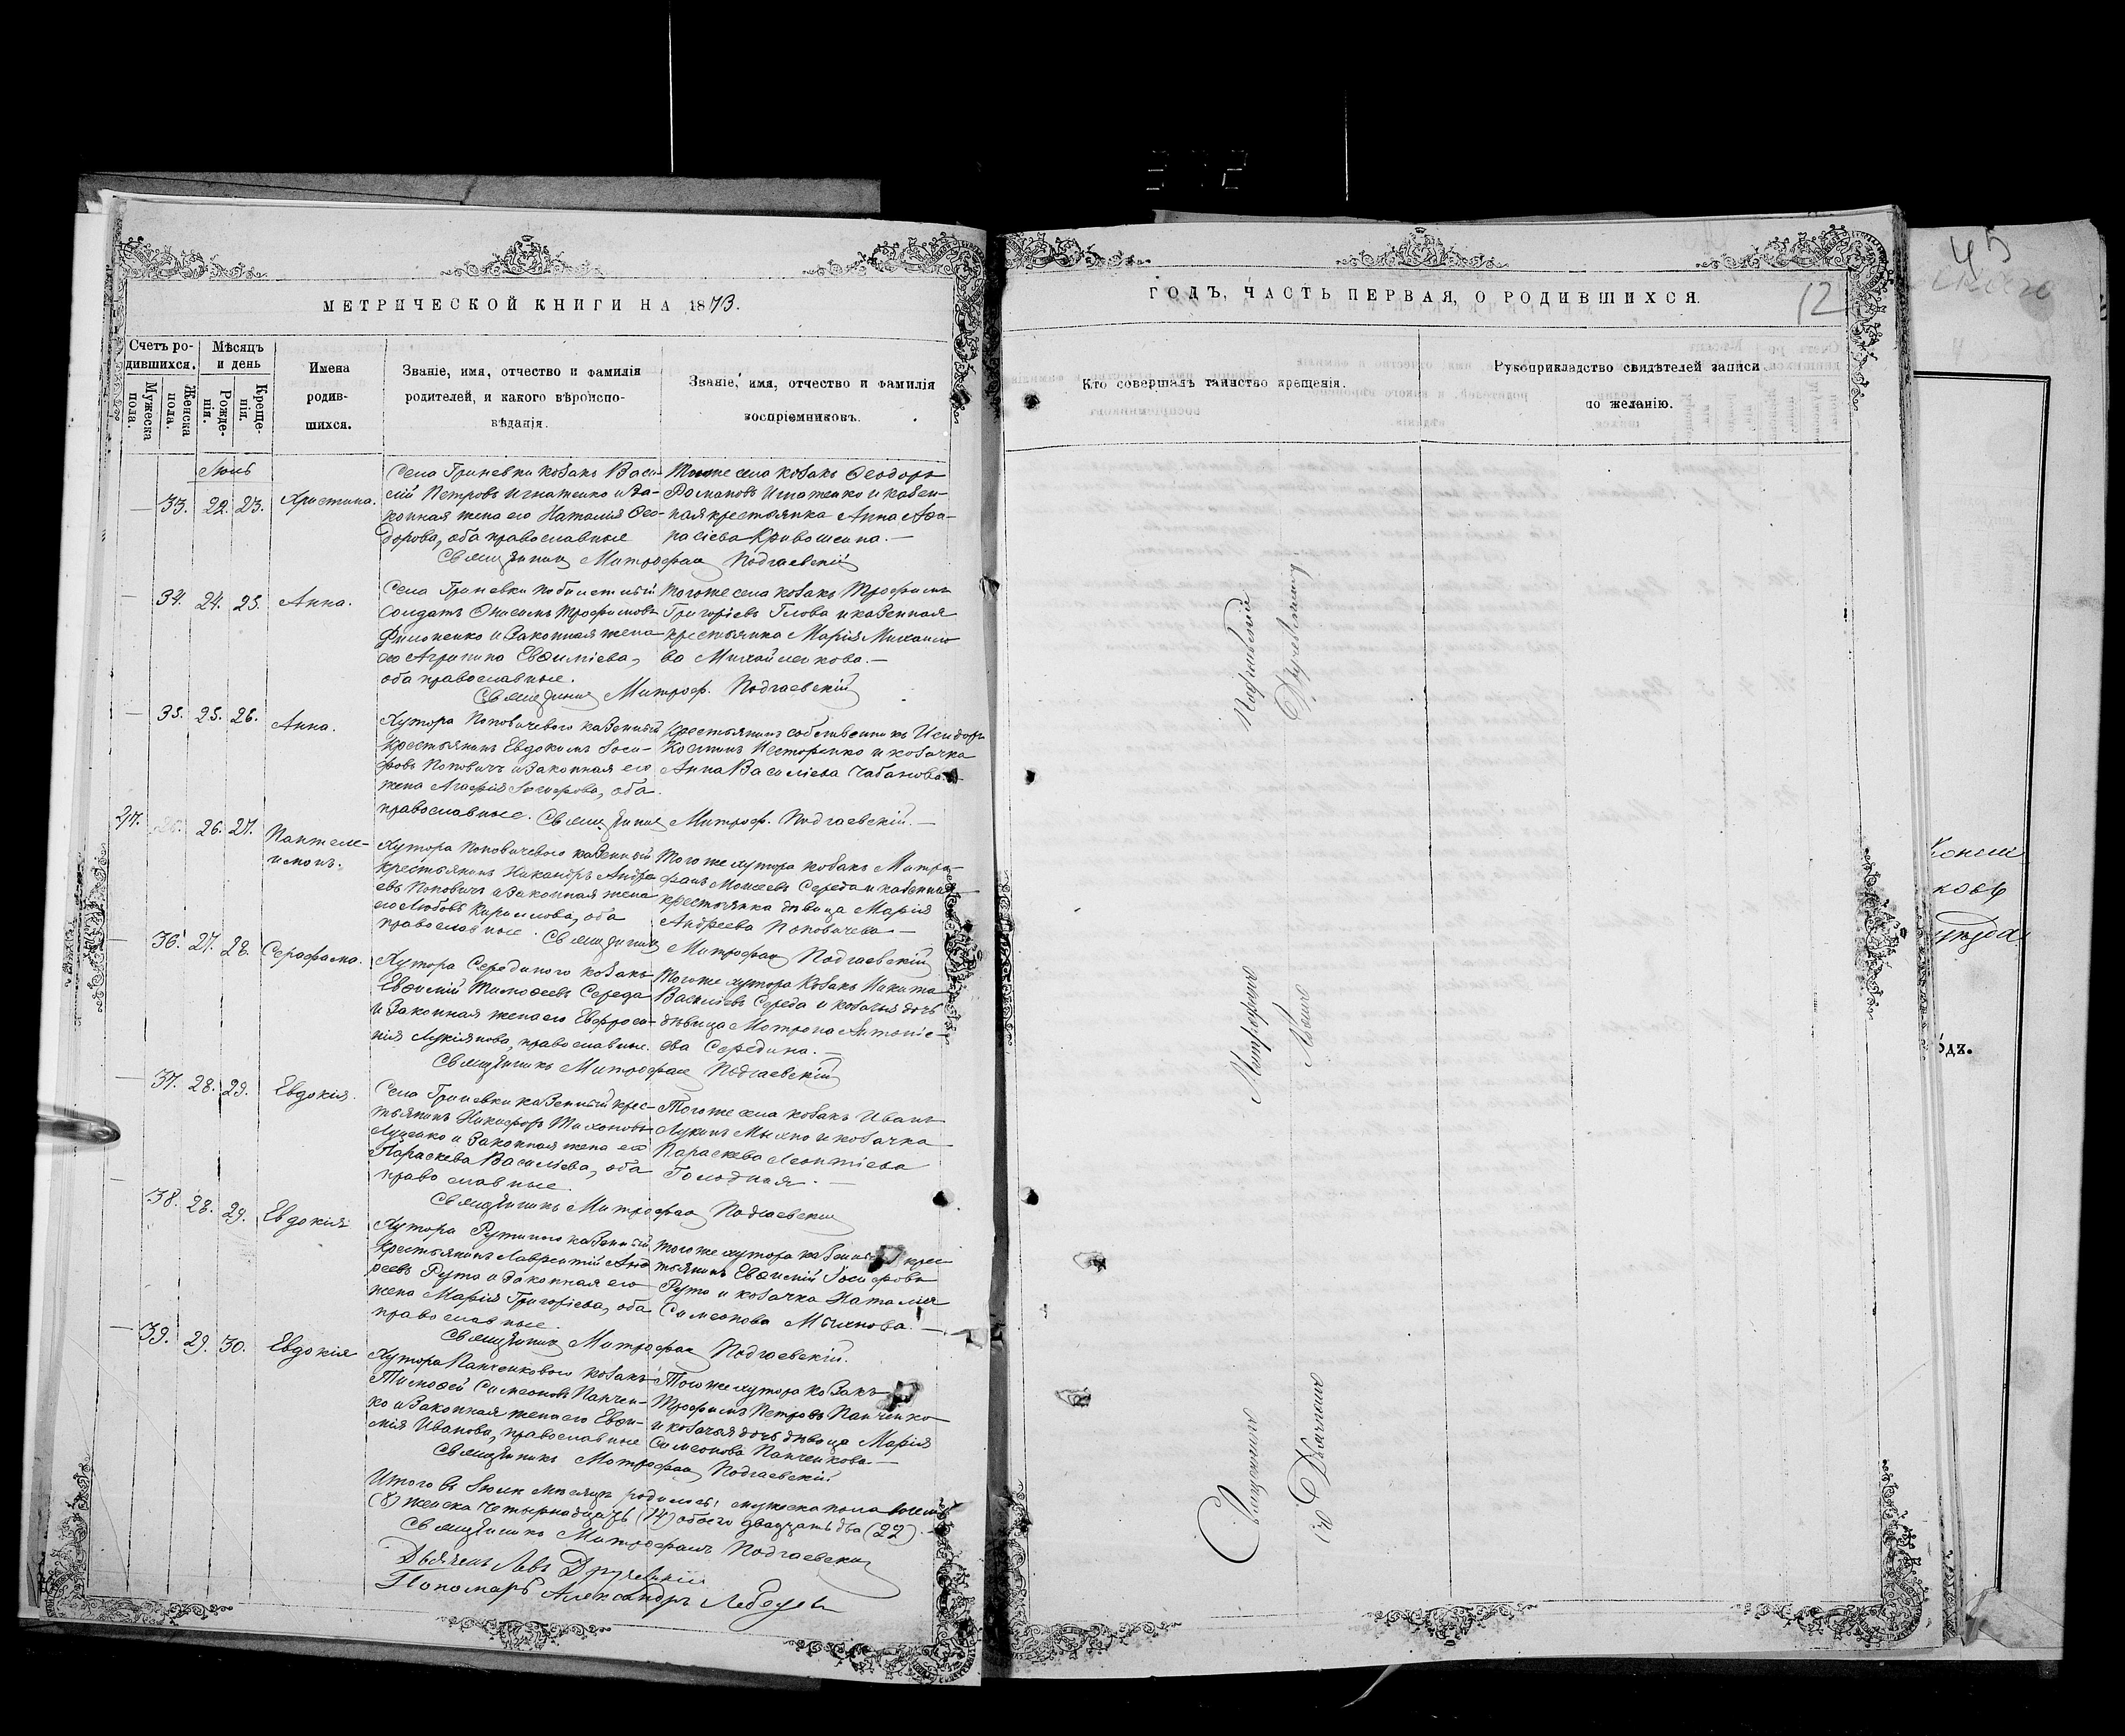 МЕТРИЧЕСКОЙ КНИГИ НА 1873.
Счетъ родившихся.
Мужеска пола.
Женска пола.
Мѣсяцъ и день
Рожденія.
Крещенія.
Имена родившихся.
Званіе, имя, отчество и фамилія родителей, и какого вѣроисповѣданія.
Званіе, имя, отчество и фамилія воспріемниковъ.
Июль
— 33. 22. 23. Христина.
Села Гриневки козакъ Васи-
лій Петровъ Игнатенко и за-
конная жена его Наталія Ѳео-
дорова, оба православные
Тогоже села козакъ Ѳеодоръ
Романовъ Игнатенко и казен-
ная крестьянка Анна Афа-
насіева Кривошеина.—
Священникъ Митрофанъ Подгаевскій
— 34. 24. 25. Анна.
Села Гриневки побилетный
солдатъ Онисимъ Трофимовъ
Филоненко и законная жена
его Агрипина Евѳиміева,
оба православные.
Тогоже села козакъ Трофимъ
Григоріевъ Глова и казенная
крестьянка Марія Михайло
ва Михайленкова.—
Священникъ Митроф. Подгаевскій
— 35. 25. 26. Анна.
Хутора Поповичевого казенный
крестьянинъ Евдокимъ Іоси-
фовъ Поповичъ и законная его
жена Агафія Іосифова, оба
православные.
крестьянинъ собственникъ Исидоръ
Костинъ Несторенко и козачка
Анна Василіева Чабанова.—
Священникъ Митроф. Подгаевскій.—
27. 26. 27. Пантеле-
имонъ.
Хутора Поповичевого казенный
крестьянинъ Никандръ Андре
евъ Поповичъ и законная жена
его Любовь Кириллова, оба
православные.
Того же хутора козакъ Митро-
фанъ Моисеевъ Середа и казенная
крестьянка дѣвица Марія
Андреева Поповичева—
Священникъ Митрофанъ Подгаевскій
— 36. 27. 28. Серафима.
Хутора Серединого козакъ
Евѳимій Тимоѳеевъ Середа
и законная жена его Евфроси-
нія Лукіянова, православные.
Тогоже хутора козакъ Никита
Василіевъ Середа и козачья дочь
дѣвица Матрона Антоніе-
ва Середина.—
Священникъ Митрофанъ Подгаевскій
— 37. 28. 29. Евдокія.
Села Гриневки казенный крес-
тьянинъ Никифоръ Тихоновъ
и законная жена его
Параскева Василіева, оба
православные
Тогоже села козакъ Иванъ
Лукинъ Михно и козачка
Параскева Леонтіева
Голодная.—
Священникъ Митрофанъ Подгаевскій
— 38. 28. 29. Евдокія
Хутора Рутиного казенный
крестьянинъ Лаврентій Анд
реевъ Рута и законная его
жена Марія Григоріева, оба
православные.
Тогоже хутора казенный крес
тьянинъ Евѳимій Іосифовъ
Рута и козачка Наталія
Симеонова Михнова.—
Священникъ Митрофанъ Подгаевскій.
— 39. 29. 30. Евдокія
Хутора Панченкового козакъ
Тимоѳей Симеоновъ Панчен-
ко и законная жена его Евѳи-
мія Иванова, православные
Тогоже хутора козакъ
Трофимъ Петровъ Панченко
и козачья дочь дѣвица Марія
Симеонова Панченкова—
Священникъ Митрофанъ Подгаевскій
Итого въ Іюлѣ мѣсяцѣ родилось: мужеска пола восемь
(8) женска четырнадцать (14) обоего двадцать два (22).
Священникъ Митрофанъ Подгаевскій
Дьячекъ Левъ
Пономарь Александръ Лебедев
ГОДЪ, ЧАСТЬ ПЕРВАЯ, О РОДИВШИХСЯ.
12
Кто совершалъ таинство крещенія.
Рукоприкладство свидѣтелей записи по желанію.
Священникъ Митрофанъ Подгаевскій
45